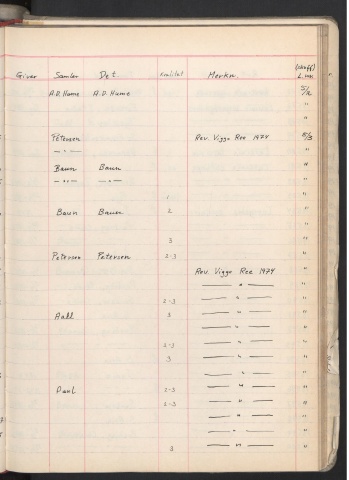 Giver Samler Det. Kvalitet Merkn. (skuff) L.nr.
A.O. Hume A.O. Hume 5/12
"
"
Petersen Rev. Viggo Ree 1974 "
— " — "
Baun Baun "
— " — — " — "
1 "
Baun Baun 2 "
"
3 "
Petersen Petersen 2-3 "
Rev. Viggo Ree 1974 "
— " — "
2-3 — " — "
Aall 3 — " — "
— " — "
2-3 — " — "
3 — " — "
— " — "
2-3 — " — "
2-3 — " — "
— " — "
— " — "
3 — " — "